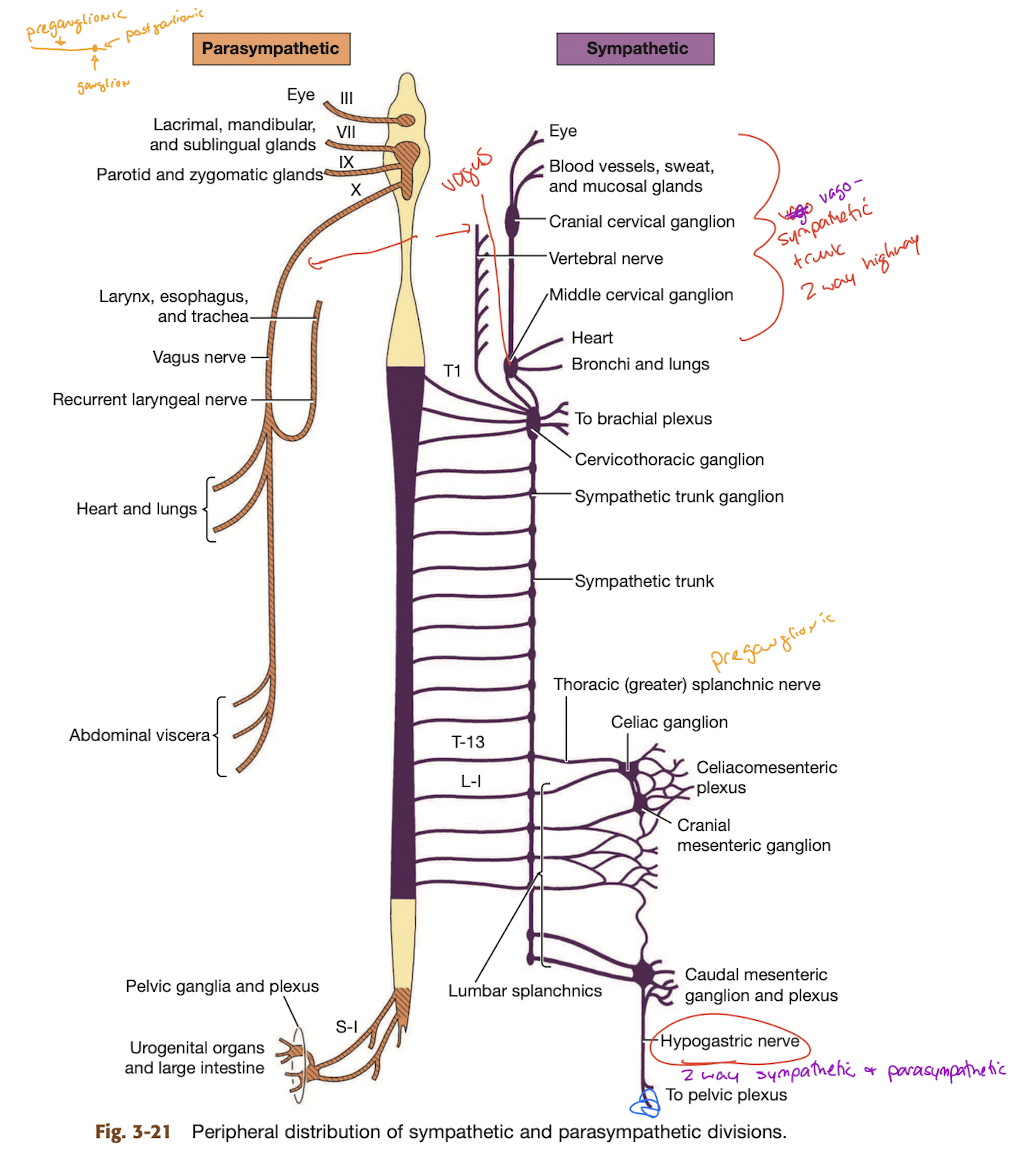 preganglionic
postganlionic
ganglion
Parasympathetic
Sympathetic
Eye
III
Lacrimal, mandibular,
and sublingual glands
VII
IX
Parotid and zygomatic glands
X
vagus
Eye
Blood vessels, sweat,
and mucosal glands
Cranial cervical ganglion
Vertebral nerve
Middle cervical ganglion
Heart
Bronchi and lungs
vago-
sympathetic
trunk
2 way highway
Larynx, esophagus,
and trachea
Vagus nerve
Recurrent laryngeal nerve
T1
To brachial plexus
Cervicothoracic ganglion
Heart and lungs
Sympathetic trunk ganglion
Sympathetic trunk
preganglionic
Thoracic (greater) splanchnic nerve
Celiac ganglion
Abdominal viscera
T-13
L-I
Celiacomesenteric
plexus
Cranial
mesenteric ganglion
Lumbar splanchnics
Caudal mesenteric
ganglion and plexus
Pelvic ganglia and plexus
S-I
Urogenital organs
and large intestine
Hypogastric nerve
2 way sympathetic + parasympathetic
To pelvic plexus
Fig. 3-21 Peripheral distribution of sympathetic and parasympathetic divisions.